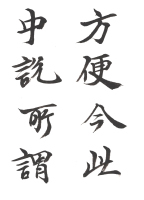 方便今此
中説所謂